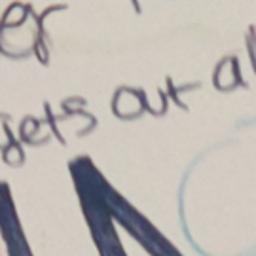 er
gets out al